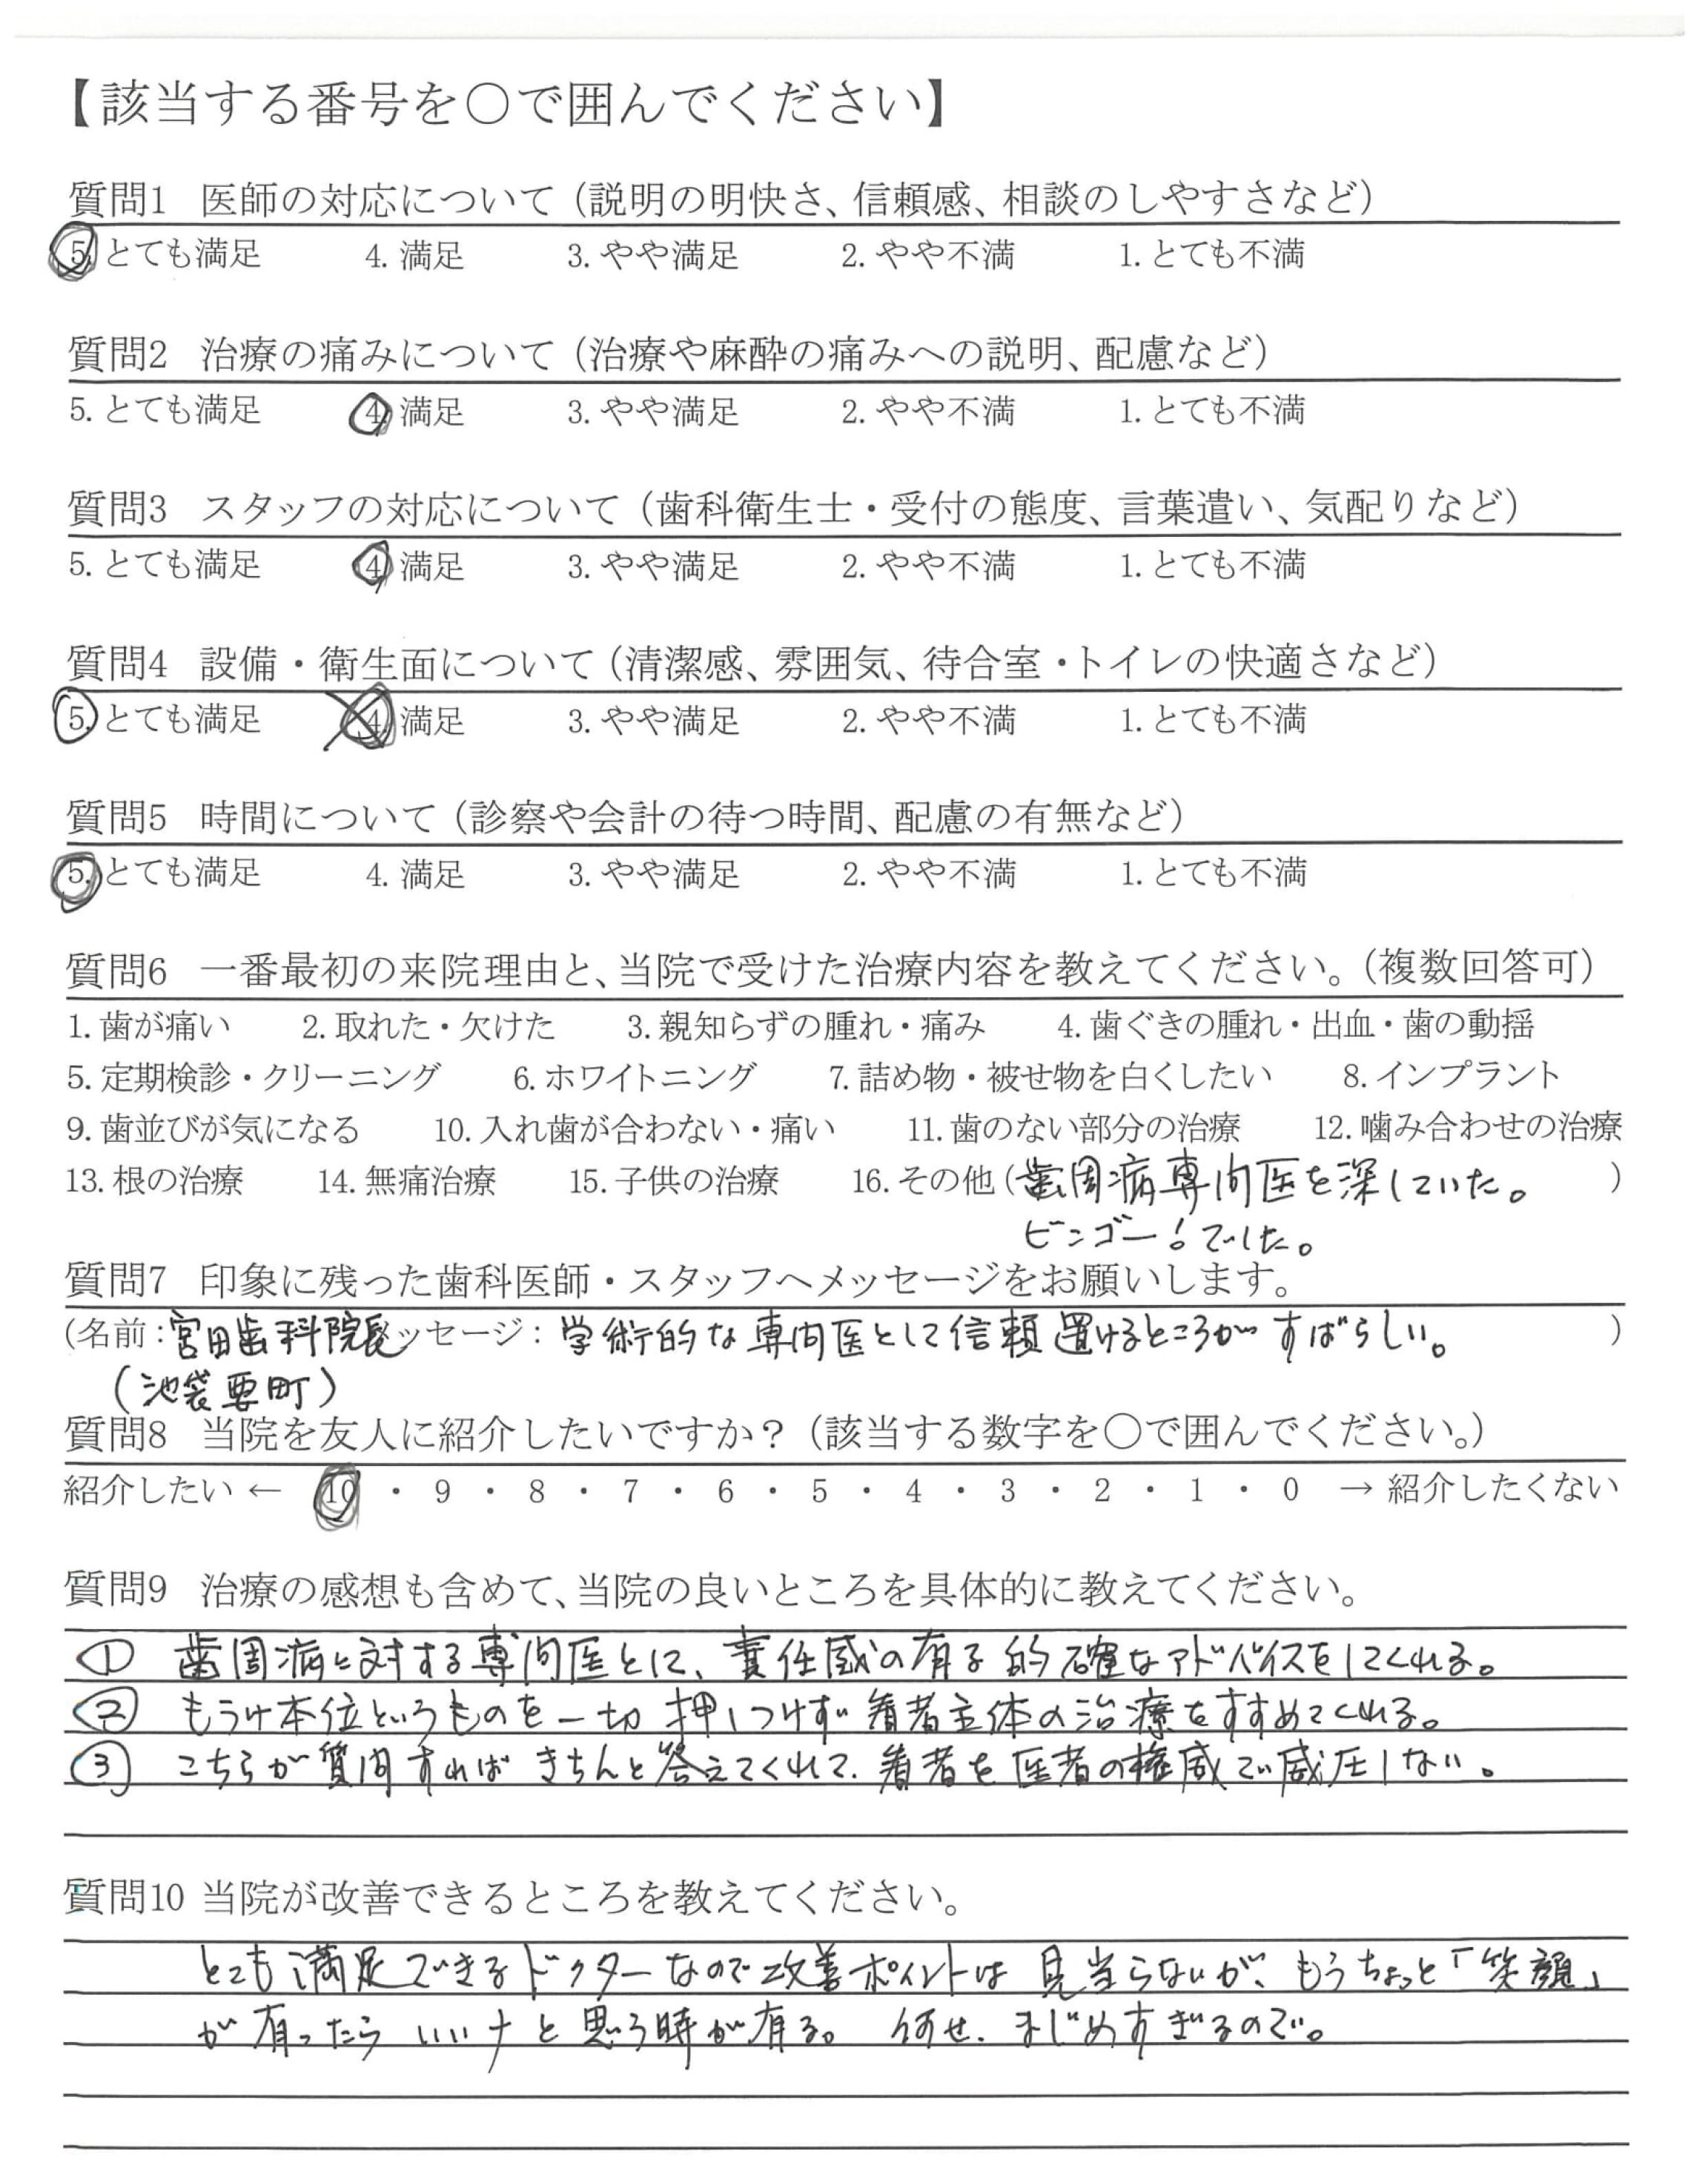 【該当する番号を○で囲んでください】
質問1 医師の対応について（説明の明快さ、信頼感、相談のしやすさなど）
5. とても満足 4. 満足 3. やや満足 2. やや不満 1. とても不満
質問2 治療の痛みについて（治療や麻酔の痛みへの説明、配慮など）
5. とても満足 4. 満足 3. やや満足 2. やや不満 1. とても不満
質問3 スタッフの対応について（歯科衛生士・受付の態度、言葉遣い、気配りなど）
5. とても満足 4. 満足 3. やや満足 2. やや不満 1. とても不満
質問4 設備・衛生面について（清潔感、雰囲気、待合室・トイレの快適さなど）
5. とても満足 4. 満足 3. やや満足 2. やや不満 1. とても不満
質問5 時間について（診察や会計の待つ時間、配慮の有無など）
5. とても満足 4. 満足 3. やや満足 2. やや不満 1. とても不満
質問6 一番最初の来院理由と、当院で受けた治療内容を教えてください。（複数回答可）
1. 歯が痛い 2. 取れた・欠けた 3. 親知らずの腫れ・痛み 4. 歯ぐきの腫れ・出血・歯の動揺
5. 定期検診・クリーニング 6. ホワイトニング 7. 詰め物・被せ物を白くしたい 8. インプラント
9. 歯並びが気になる 10. 入れ歯が合わない・痛い 11. 歯のない部分の治療 12. 噛み合わせの治療
13. 根の治療 14. 無痛治療 15. 子供の治療 16. その他（歯周病専門医を深していた。）
ビンゴー！でした。
質問7 印象に残った歯科医師・スタッフへメッセージをお願いします。
（名前：宮田歯科院長 メッセージ：学術的な専門医として信頼置けるところがすばらしい。）
（池袋要町）
質問8 当院を友人に紹介したいですか？（該当する数字を○で囲んでください。）
紹介したい ← 10 ・ 9 ・ 8 ・ 7 ・ 6 ・ 5 ・ 4 ・ 3 ・ 2 ・ 1 ・ 0 → 紹介したくない
質問9 治療の感想も含めて、当院の良いところを具体的に教えてください。
① 歯周病に対する専門医として、責任感の有る的確なアドバイスをしてくれる。
② もうけ本位というものを一切押しつけず患者主体の治療をすすめてくれる。
③ こちらが質問すればきちんと答えてくれて、患者を医者の権威で威圧しない。
質問10 当院が改善できるところを教えてください。
とても満足できるドクターなので改善ポイントは見当らないが、もうちょっと「笑顔」
が有ったらいいナと思う時が有る。何せ、まじめすぎるので。